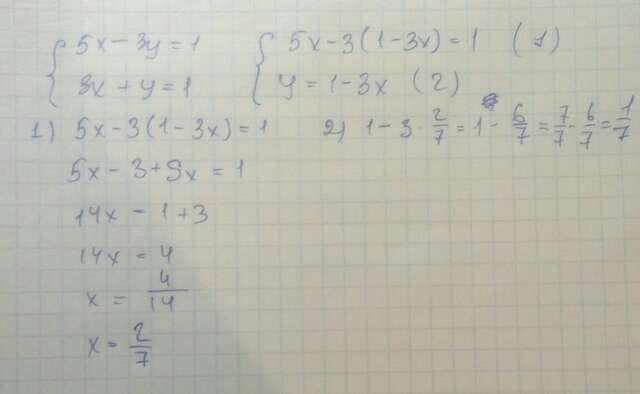 { 5x - 3y = 1
3x + y = 1
{ 5x - 3(1 - 3x) = 1 (1)
y = 1 - 3x (2)
1) 5x - 3(1 - 3x) = 1
5x - 3 + 9x = 1
14x = 1 + 3
14x = 4
x = 4/14
x = 2/7
2) 1 - 3 · 2/7 = 1 - 6/7 = 7/7 - 6/7 = 1/7